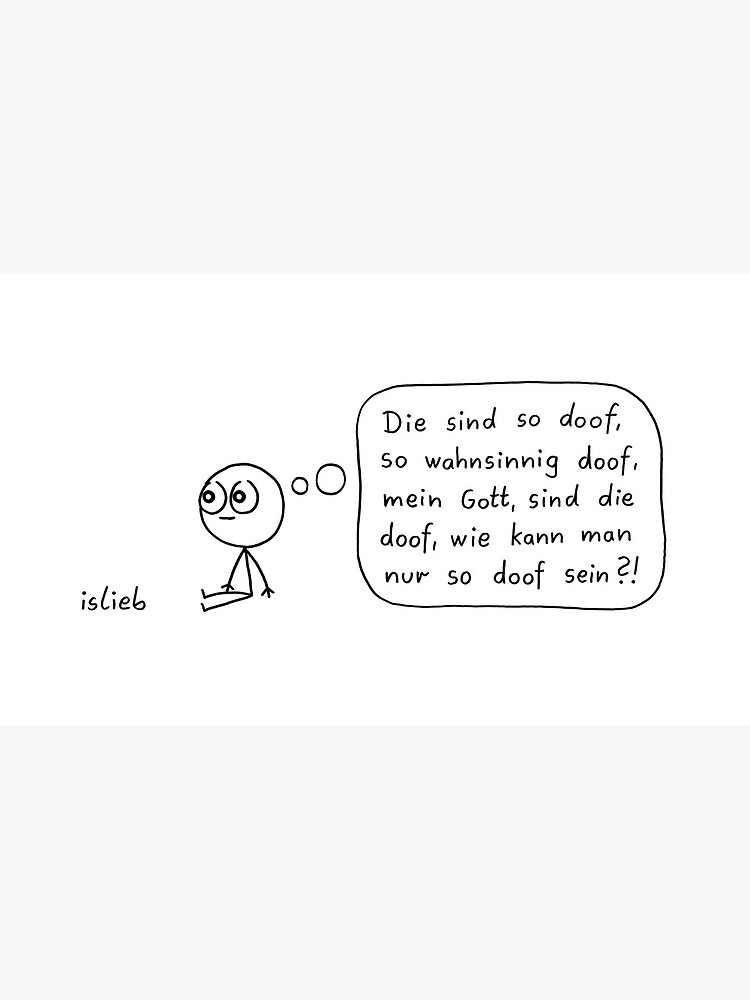 Die sind so doof,
so wahnsinnig doof,
mein Gott, sind die
doof, wie kann man
nur so doof sein?!
islieb